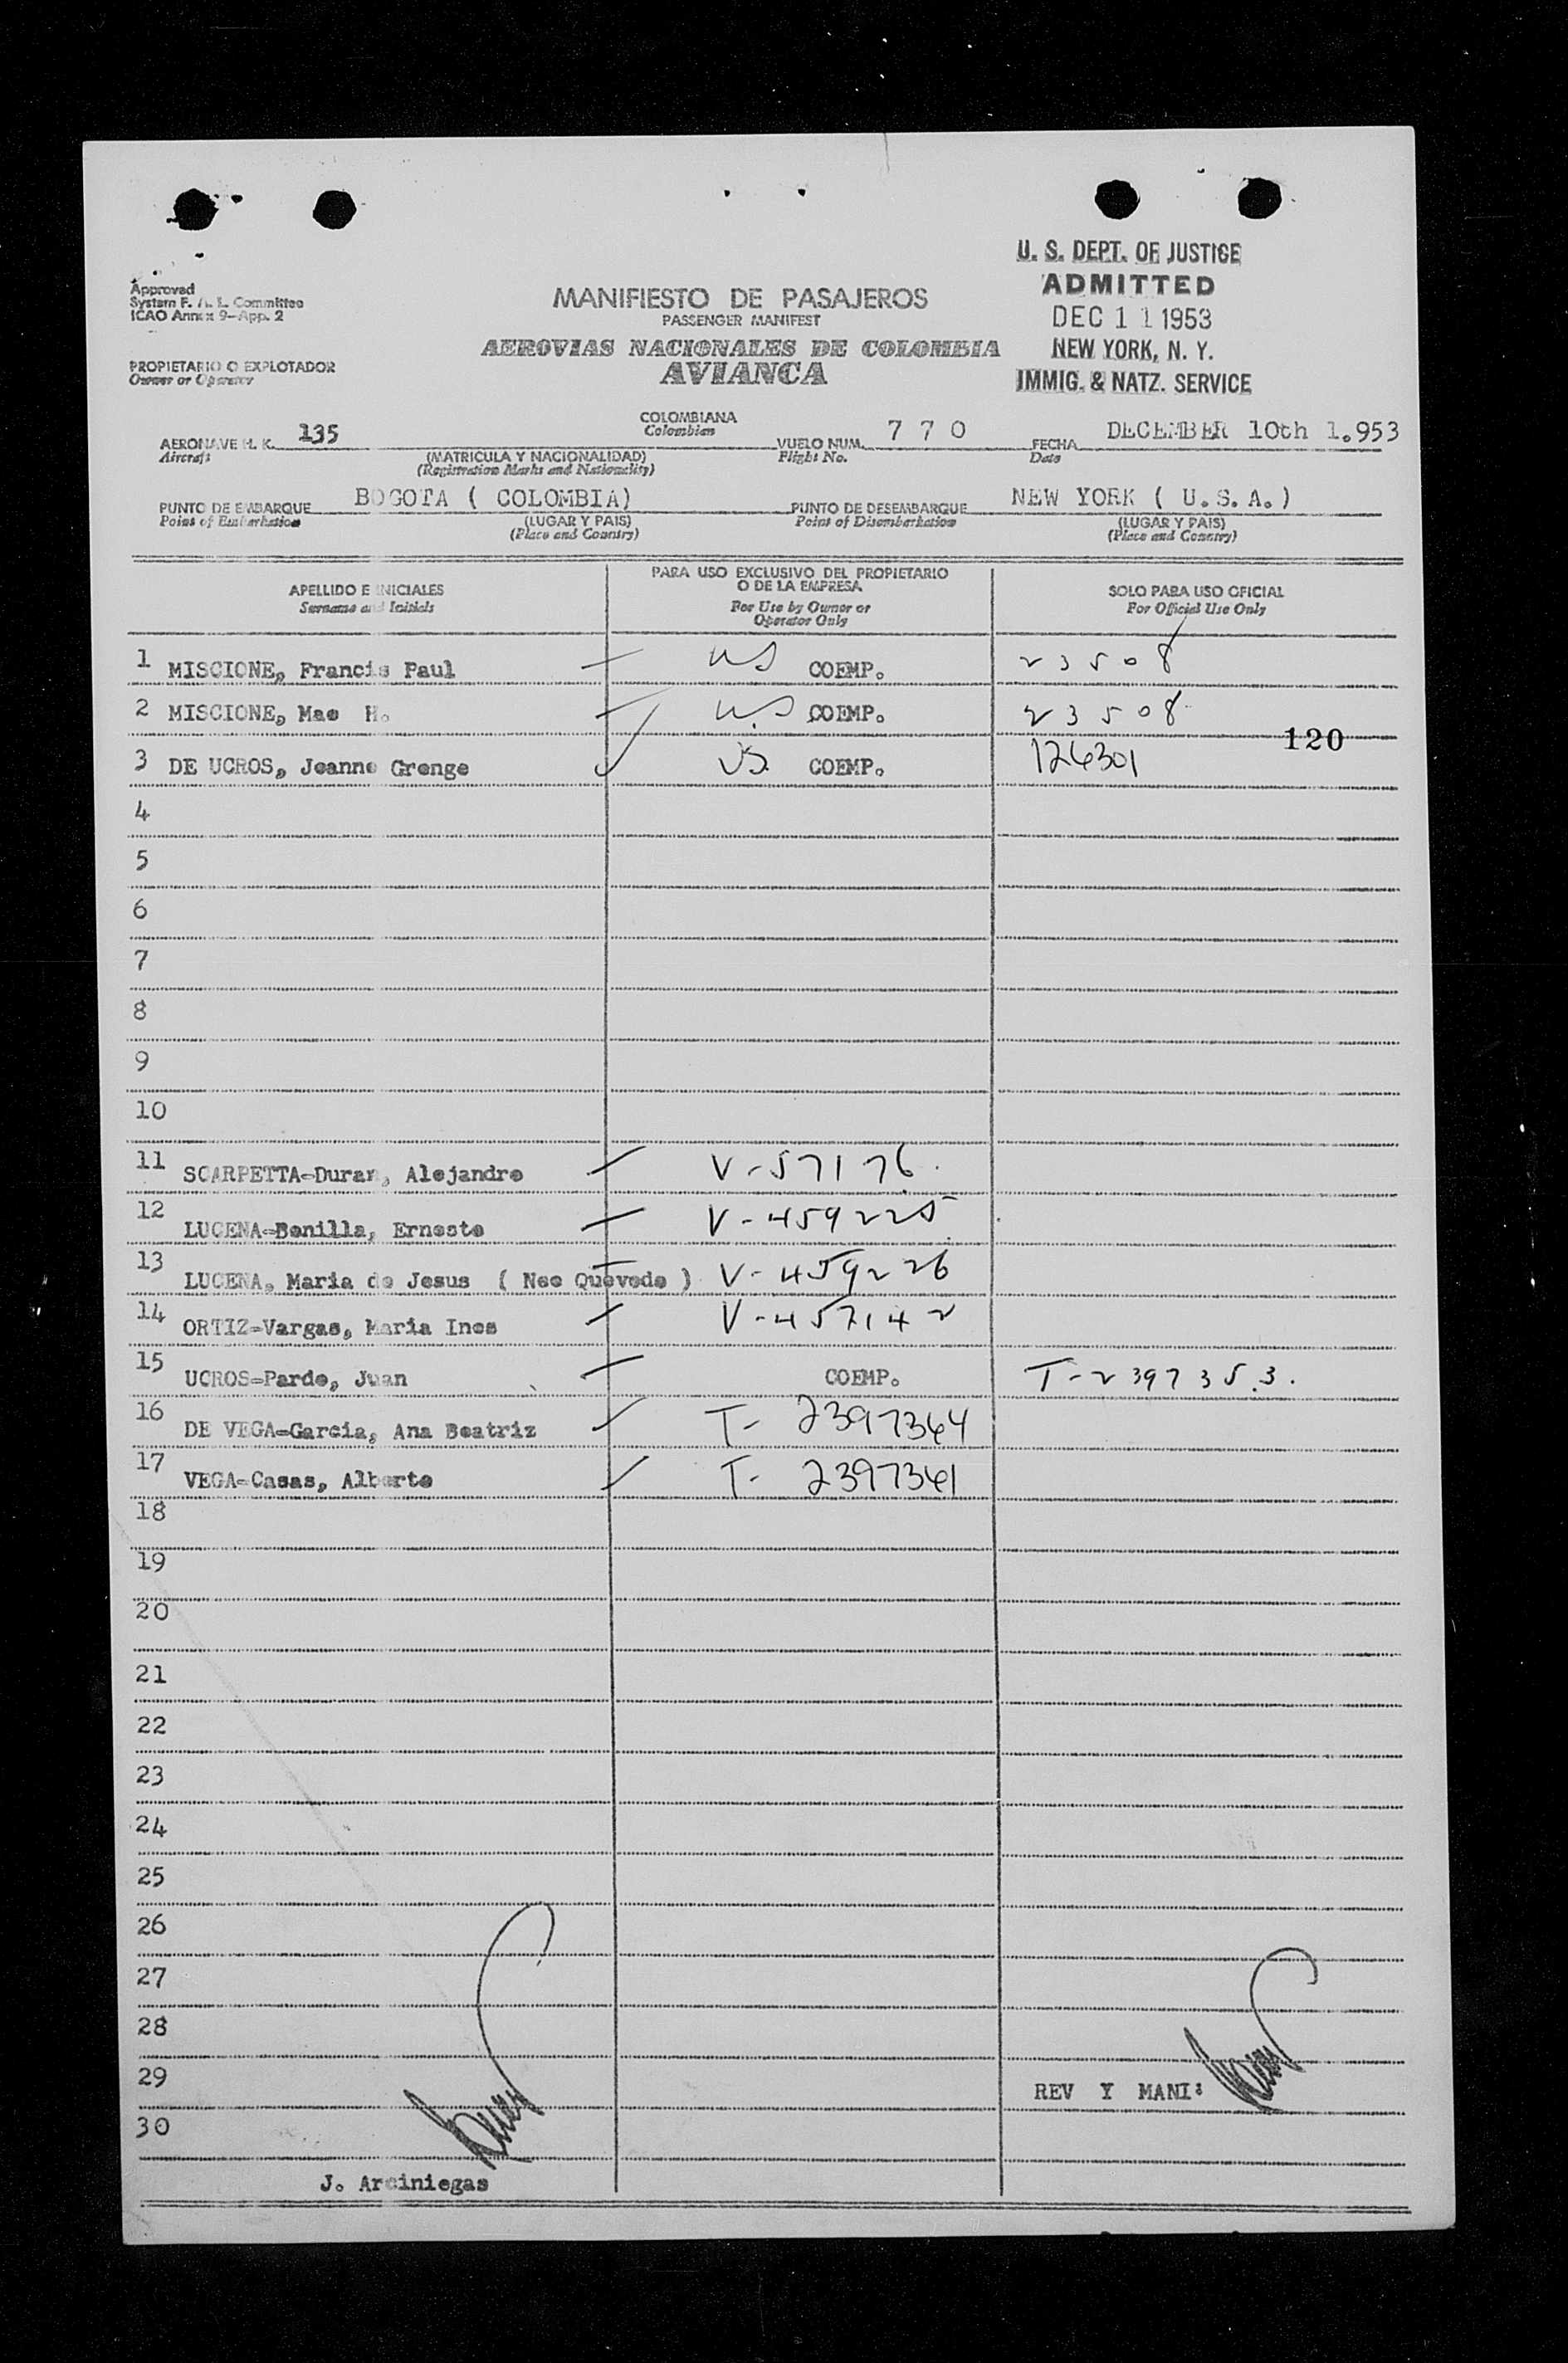 U. S. DEPT. OF JUSTICE
ADMITTED
DEC 1 1 1953
NEW YORK, N. Y.
IMMIG. & NATZ. SERVICE
Approved
System F. A. L. Committee
ICAO Annex 9-App. 2
MANIFIESTO DE PASAJEROS
PASSENGER MANIFEST
AEROVIAS NACIONALES DE COLOMBIA
AVIANCA
PROPIETARIO O EXPLOTADOR
Owner or Operator
AERONAVE H. K. 135 COLOMBIANA VUELO NUM. 7 7 0 FECHA DECEMBER 10th 1.953
Aircraft Colombian Flight No. Date
(MATRICULA Y NACIONALIDAD)
(Registration Marks and Nationality)
PUNTO DE EMBARQUE BOGOTA ( COLOMBIA) PUNTO DE DESEMBARQUE NEW YORK ( U.S.A.)
Point of Embarkation (LUGAR Y PAIS) Point of Disembarkation (LUGAR Y PAIS)
(Place and Country) (Place and Country)
APELLIDO E INICIALES PARA USO EXCLUSIVO DEL PROPIETARIO O DE LA EMPRESA SOLO PARA USO OFICIAL
Surname and Initials For Use by Owner or Operator Only For Official Use Only
1 MISCIONE, Francis Paul US COEMP. 23508
2 MISCIONE, Mae H. U.S COEMP. 23508
120
3 DE UCROS, Jeanne Grenge US. COEMP. 126301
4
5
6
7
8
9
10
11 SCARPETTA-Duran, Alejandro V-57176.
12 LUCENA-Bonilla, Ernesto V-459225
13 LUCENA, Maria de Jesus ( Nee Quevedo ) V-459226
14 ORTIZ-Vargas, Maria Ines V-457142
15 UCROS-Pardo, Juan COEMP. T-2397353.
16 DE VEGA-Garcia, Ana Beatriz T- 2397364
17 VEGA-Casas, Alberto T- 2397361
18
19
20
21
22
23
24
25
26
27
28
29 REV Y MANI:
30
J. Arciniegas